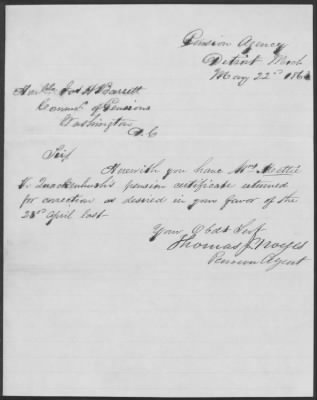 Pension Agency
Detroit Mich
May 22d 186
Hon Jos H Barrett
Comr of Pensions
Washington
D.C
Sir
Herewith you have Mrs Mettie
V. Quackenbush's pension certificate returned
for correction as desired in your favor of the
28th April last
Your Obdt Servt
Thomas J Noyes
Pension Agent